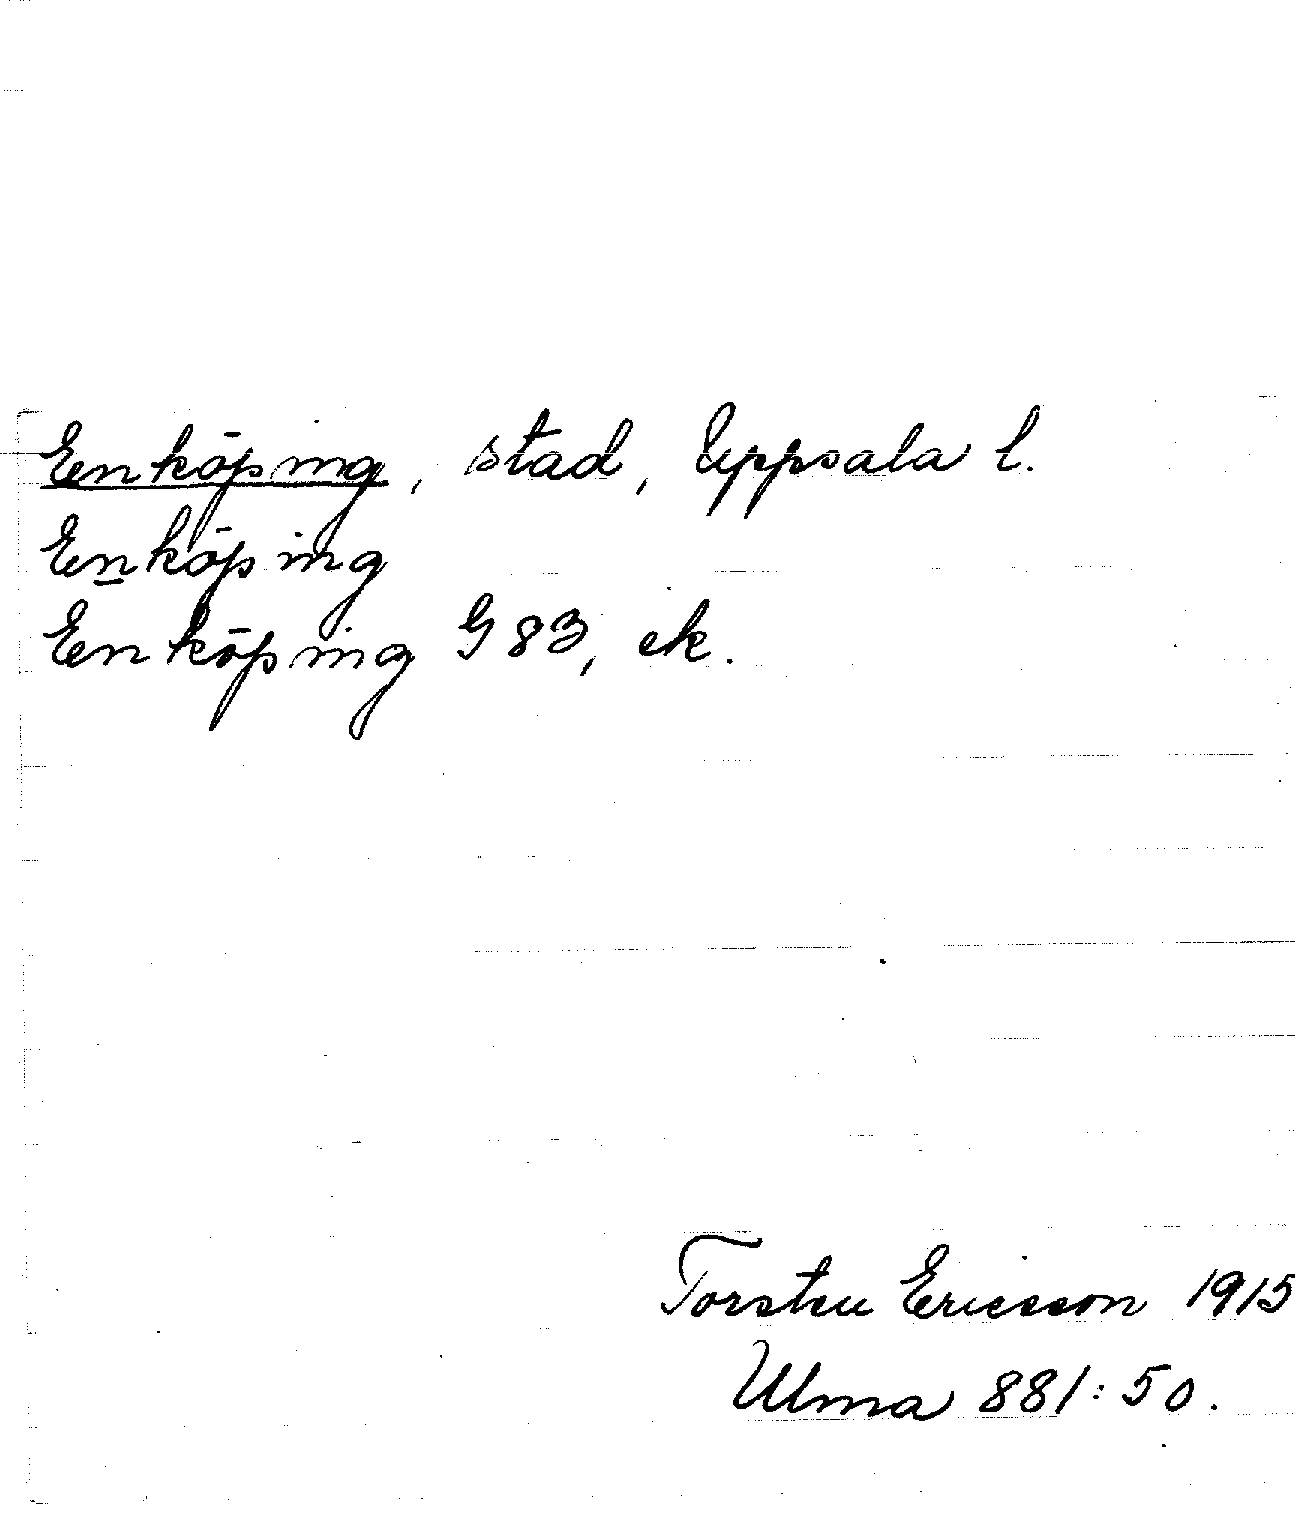 Enköping, stad, Uppsala l.
Enköping
Enköping G 83, ek.
Torsten Ericsson 1915
Ulma 881:50.